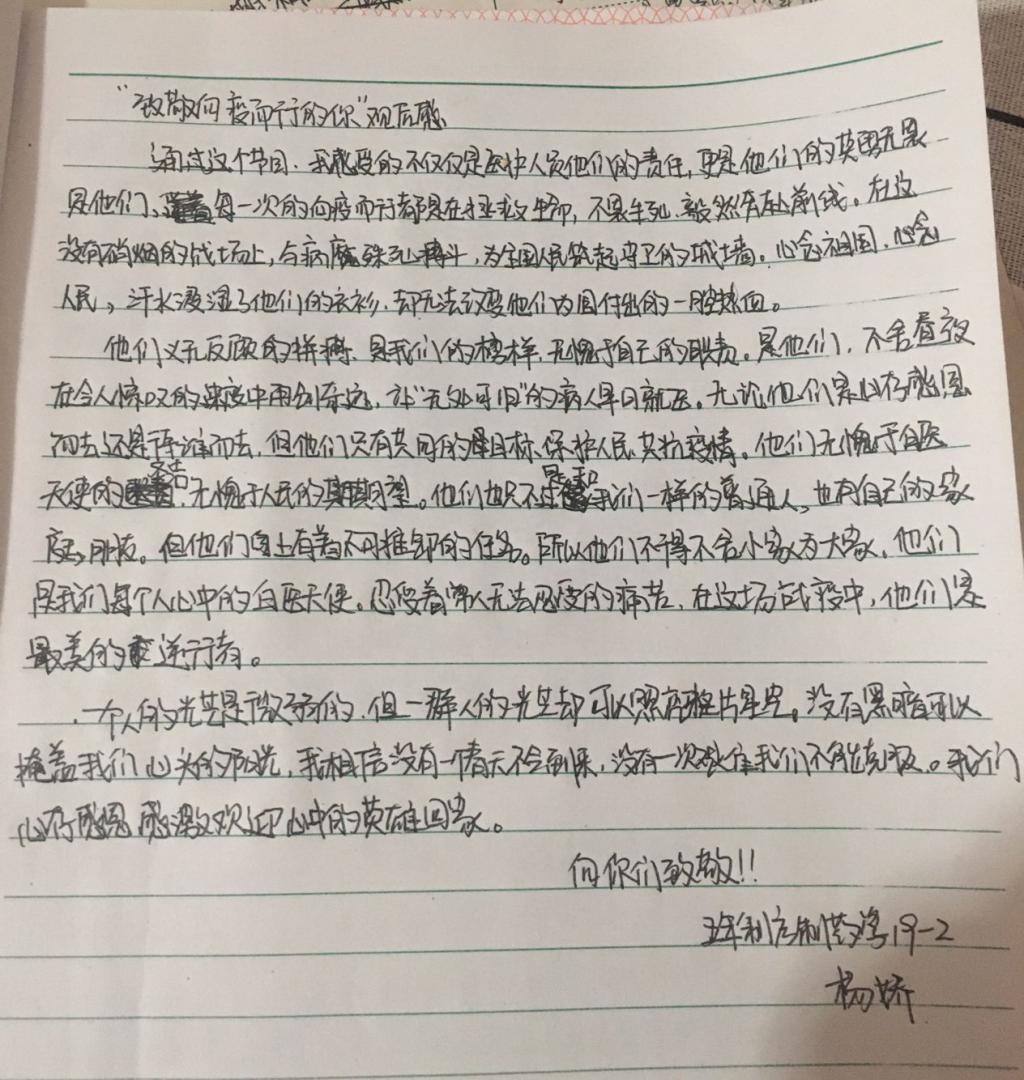 “致敬向疫而行的你”观后感
通过这个节目,我感受的不仅仅是医护人员他们的责任,更是他们的英勇无畏
是他们、每一次的向疫而行都是在拯救生命,不畏生死、毅然奔赴前线。在这
没有硝烟的战场上,与病魔殊死搏斗,为全国人民筑起守卫的城墙。心念祖国,心念
人民,汗水浸湿了他们的衣衫,却无法改变他们为国付出的一腔热血。
他们义无反顾的拼搏,是我们的榜样,无愧于自己的职责。是他们,不舍昼夜
在令人惊叹的速度中再创奇迹,让“无处可归”的病人早日就医。无论他们是心存感恩
而去还是承诺而去,但他们只有共同的目标、保护人民,共抗疫情。他们无愧于白医
天使的,无愧于人民的期望。他们也只不过是和我们一样的普通人,也有自己的家
庭,朋友。但他们身上有着不可推卸的任务。所以他们不得不舍小家为大家,他们
是我们每个人心中的白医天使。忍受着常人无法忍受的痛苦,在这场战疫中,他们是
最美的逆行者。
一个人的光芒是微弱的,但一群人的光芒却可以照亮整片星空。没有黑暗可以
掩盖我们心头的阳光,我相信没有一个春天不会到来,没有一次我们不能克服。我们
心存感恩,感激欢迎心中的英雄回家。
向你们致敬!!
五年制高制药 19-2
杨娇